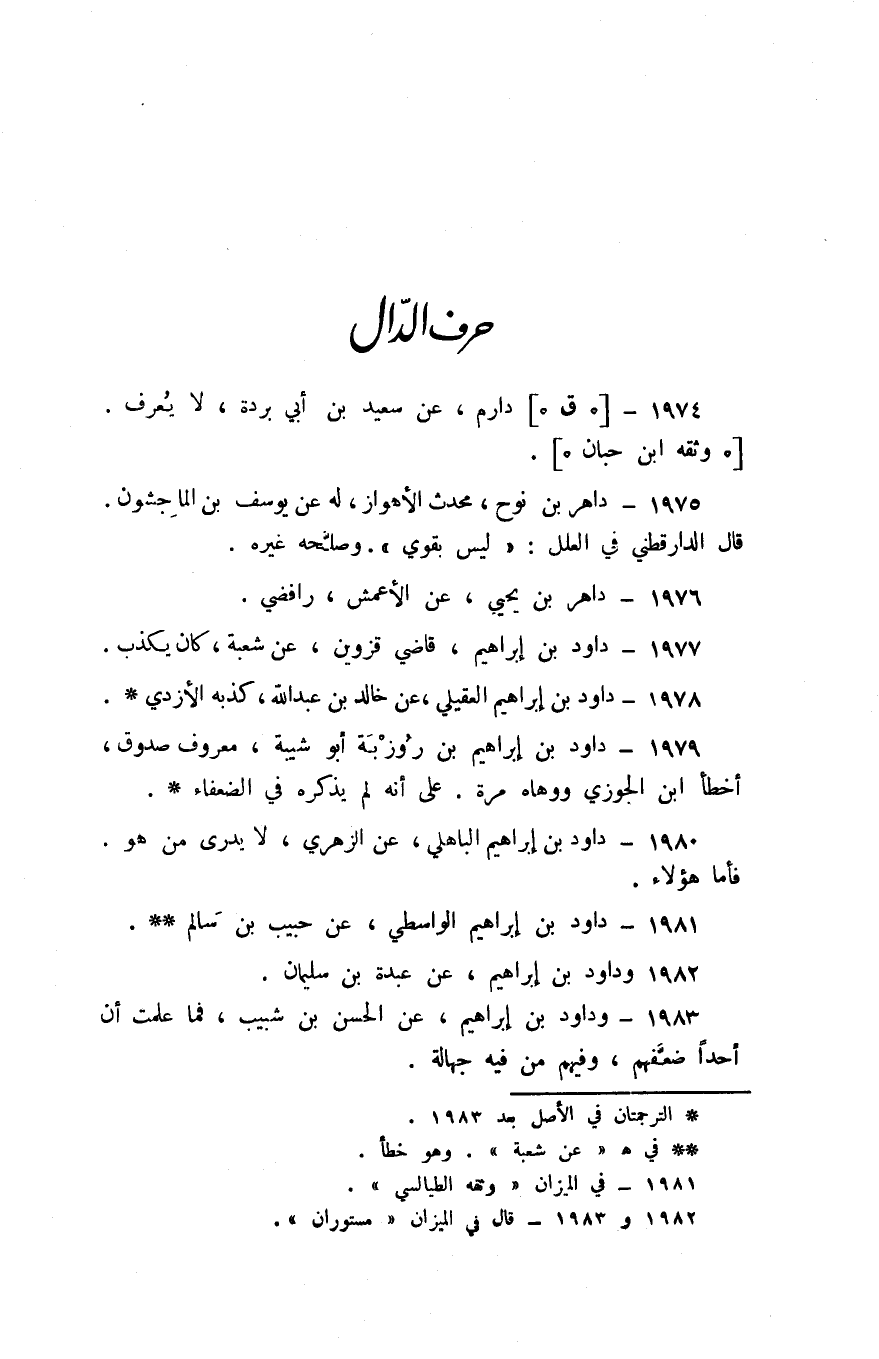 حرف الدّال
١٩٧٤ – [ه ق ه] دارم ، عن سعيد بن أبي بردة ، لا يُعرف .
[ه وثقه ابن حبان ه] .
١٩٧٥ – داهر بن نوح ، محدث الأهواز ، له عن يوسف بن الماجِشون .
قال الدارقطني في العلل : « ليس بقوي » . وصلَّحه غيره .
١٩٧٦ – داهر بن يحيي ، عن الأعمش ، رافضي .
١٩٧٧ – داود بن إبراهيم ، قاضي قزوين ، عن شعبة ، كان يكذب .
١٩٧٨ – داود بن إبراهيم العقيلي ، عن خالد بن عبدالله ، كذبه الأزدي * .
١٩٧٩ – داود بن إبراهيم بن رُوزْبَة أبو شيبة ، معروف صدوق ،
أخطأ ابن الجوزي ووهاه مرة . على أنه لم يذكره في الضعفاء * .
١٩٨٠ – داود بن إبراهيم الباهلي ، عن الزهري ، لا يدرى من هو .
فأما هؤلاء .
١٩٨١ – داود بن إبراهيم الواسطي ، عن حبيب بن سَالم ** .
١٩٨٢ وداود بن إبراهيم ، عن عبدة بن سليمان .
١٩٨٣ – وداود بن إبراهيم ، عن الحسن بن شبيب ، فما علمت أن
أحداً ضعَّفهم ، وفيهم من فيه جهالة .
* الترجمتان في الأصل بعد ١٩٨٣ .
** في ه « عن شعبة » . وهو خطأ .
١٩٨١ – في الميزان « وثقه الطيالسي » .
١٩٨٢ و ١٩٨٣ – قال في الميزان « مستوران » .